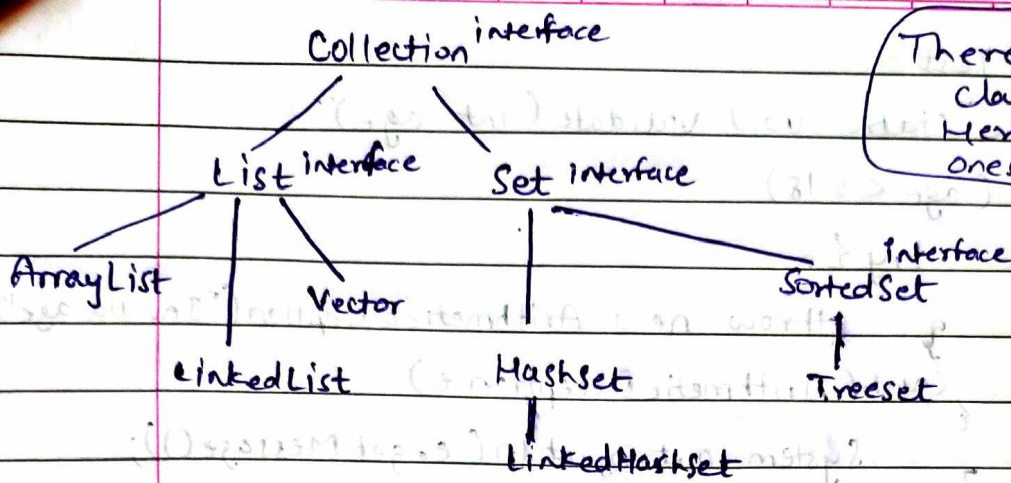 Collection interface
There
Cla
Her
ones
List interface
Set interface
ArrayList
Vector
interface
SortedSet
LinkedList
Hashset
Treeset
LinkedHashset